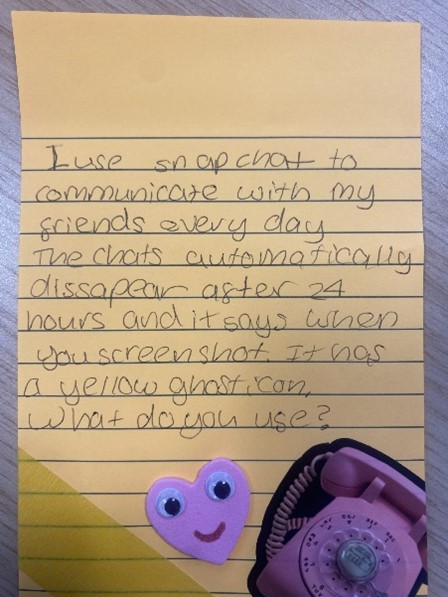 I use snapchat to
communicate with my
friends every day
The chats automatically
dissapear after 24
hours and it says when
you screenshot. It has
a yellow ghost icon.
What do you use?